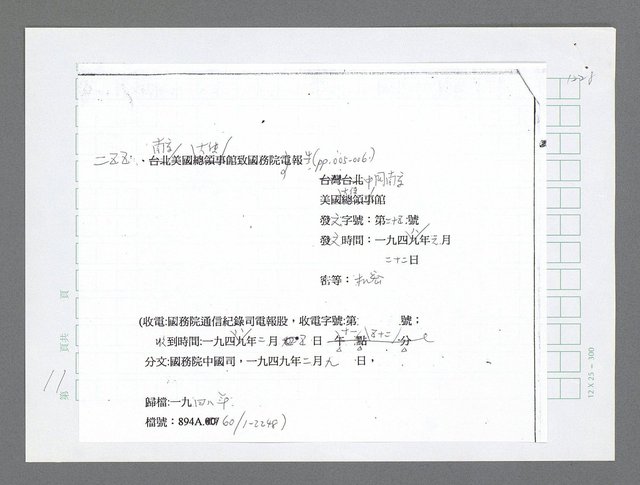 1228
南京 大使
二五五、台北美國總領事館致國務院電報 (pp.005-006)
台灣台北 中國南京
美國總領事館
發文字號：第二十五號
發文時間：一九四九年元月
二十二日
密等：機密
(收電:國務院通信紀錄司電報股，收電字號:第 號；
收到時間:一九四九年二月 日 午 點 分
分文:國務院中國司，一九四九年二月九日，
歸檔:一九四八年
檔號：894A.00/60/1-2248)
第 頁共 頁
11
12 X 25 - 300